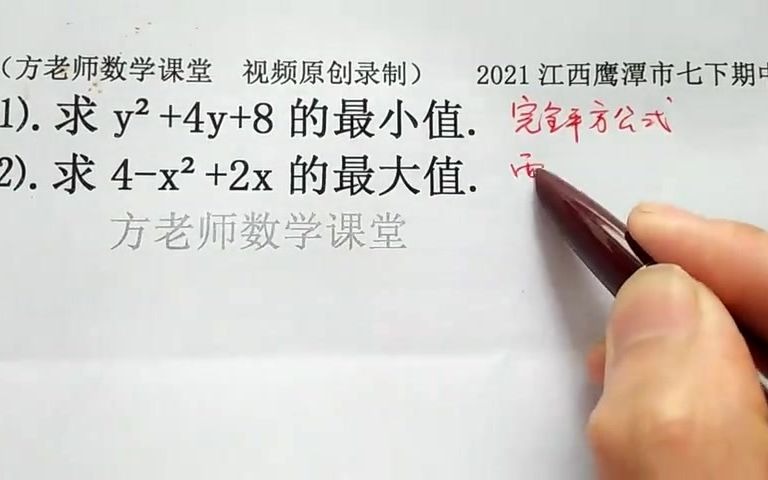 （方老师数学课堂 视频原创录制） 2021 江西鹰潭市七下期中
1). 求 y²+4y+8 的最小值. 完全平方公式
2). 求 4-x²+2x 的最大值.
方老师数学课堂